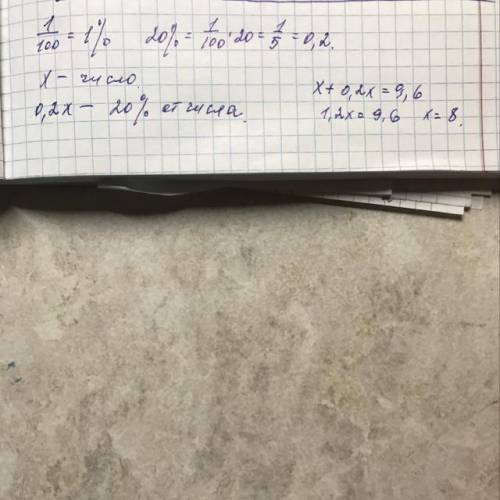 1/100 = 1%   20% = 1/100 · 20 = 1/5 = 0,2.
x – число.
0,2x – 20% от числа.
x + 0,2x = 9,6
1,2x = 9,6   x = 8.